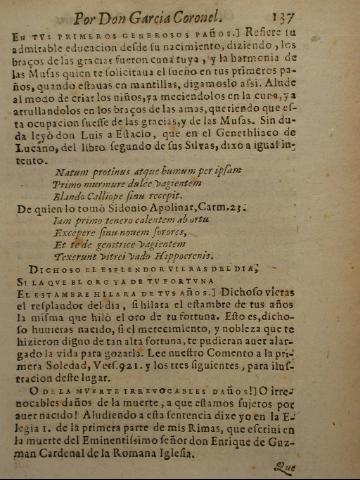 Por Don Garcia Coronel. 137
EN TVS PRIMEROS GENEROSOS PAÑOS.] Refiere su
admirable educacion desde su nacimiento, diziendo, los
braços de las gracias fueron cuna tuya, y la harmonia de
las Musas quien te solicitaua el sueño en tus primeros pa-
ños, quando estauas en mantillas, digamoslo assi. Alude
al modo de criar los niños, ya meciendolos en la cuna, ya
arrullandolos en los braços de las amas, queriendo que es-
ta ocupacion fuesse de las gracias, y de las Musas. Sin du-
da leyò don Luis a Estacio, que en el Genethliaco de
Lucano, del libro segundo de sus Siluas, dixo a igual in-
tento.
Natum protinus atque humum per ipsam
Primo murmure dulce vagientem
Blando Calliope sinu recepit.
De quien lo tomò Sidonio Apolinar, Carm. 23.
Iam primo tenero calentem ab ortu
Excepere sinu nouem sorores,
Et te de genitrice vagientem
Texerunt vitrei vado Hippocrenis.
DICHOSO EL ESPLENDOR VIERAS DEL DIA,
SI LA QVE EL ORO YA DE TV FORTVNA
EL ESTAMBRE HILARA DE TVS AÑOS.] Dichoso vieras
el resplandor del dia, si hilara el estambre de tus años
la misma que hilò el oro de tu fortuna. Esto es, dicho-
so huuieras nacido, si el merecimiento, y nobleza que te
hizieron digno de tan alta fortuna, te pudieran auer alar-
gado la vida para gozarla. Lee nuestro Comento a la pri-
mera Soledad, Vers. 921. y los tres siguientes, para ilus-
tracion deste lugar.
O DE LA MVERTE IRREVOCABLES DAÑOS!] O irre-
uocables daños de la muerte, a que estamos sujetos por
auer nacido! Aludiendo a esta sentencia dixe yo en la E-
legia 1. de la primera parte de mis Rimas, que escriui en
la muerte del Eminentissimo señor don Enrique de Guz-
man Cardenal de la Romana Iglesia.
Que